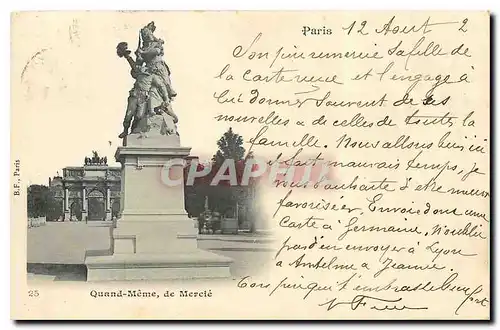 Paris 12 Août 2
Son pépin remercie sa fille de
la carte reçue et l'engage à
lui donner souvent de ses
nouvelles & de celles de toute la
famille. Nous allons bien ici
il fait mauvais temps, je
vous souhaite d'être mieux
favorisée. Envoie donc une
carte à Germaine. N'oublie
pas d'en envoyer à Lyon
à Anselme à Jeanne.
que je t'embrasse bien fort
B.F., Paris
CPArama.com
25 Quand-Même, de Mercié